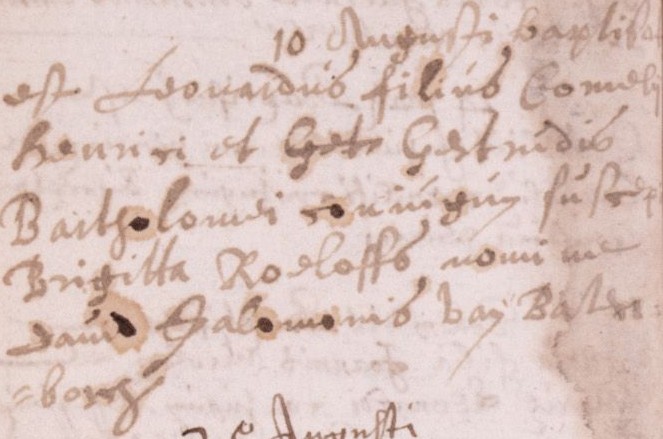 10 Augusti baptisa
est Leonardus filius Cornelij
Henrici et Gertrudis
Bartholomei coniugum suscep
Brigitta Roeloffs nomine
David Salomonis van Baten
=borch
Augusti